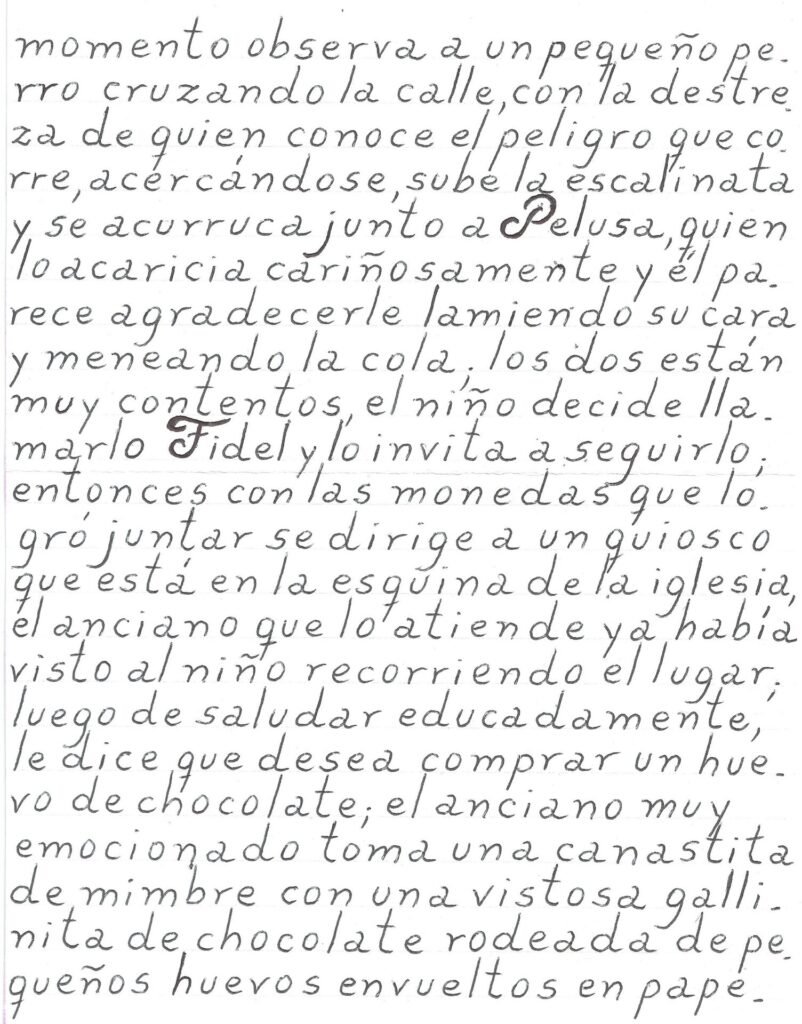 momento observa a un pequeño pe-
rro cruzando la calle, con la destre-
za de quien conoce el peligro que co-
rre, acercándose, sube la escalinata
y se acurruca junto a Pelusa, quien
lo acaricia cariñosamente y él pa-
rece agradecerle lamiendo su cara
y meneando la cola; los dos están
muy contentos, el niño decide lla-
marlo Fidel y lo invita a seguirlo;
entonces con las monedas que lo-
gró juntar se dirige a un quiosco
que está en la esquina de la iglesia,
el anciano que lo atiende ya había
visto al niño recorriendo el lugar;
luego de saludar educadamente,
le dice que desea comprar un hue-
vo de chocolate; el anciano muy
emocionado toma una canastita
de mimbre con una vistosa galli-
nita de chocolate rodeada de pe-
queños huevos envueltos en pape-